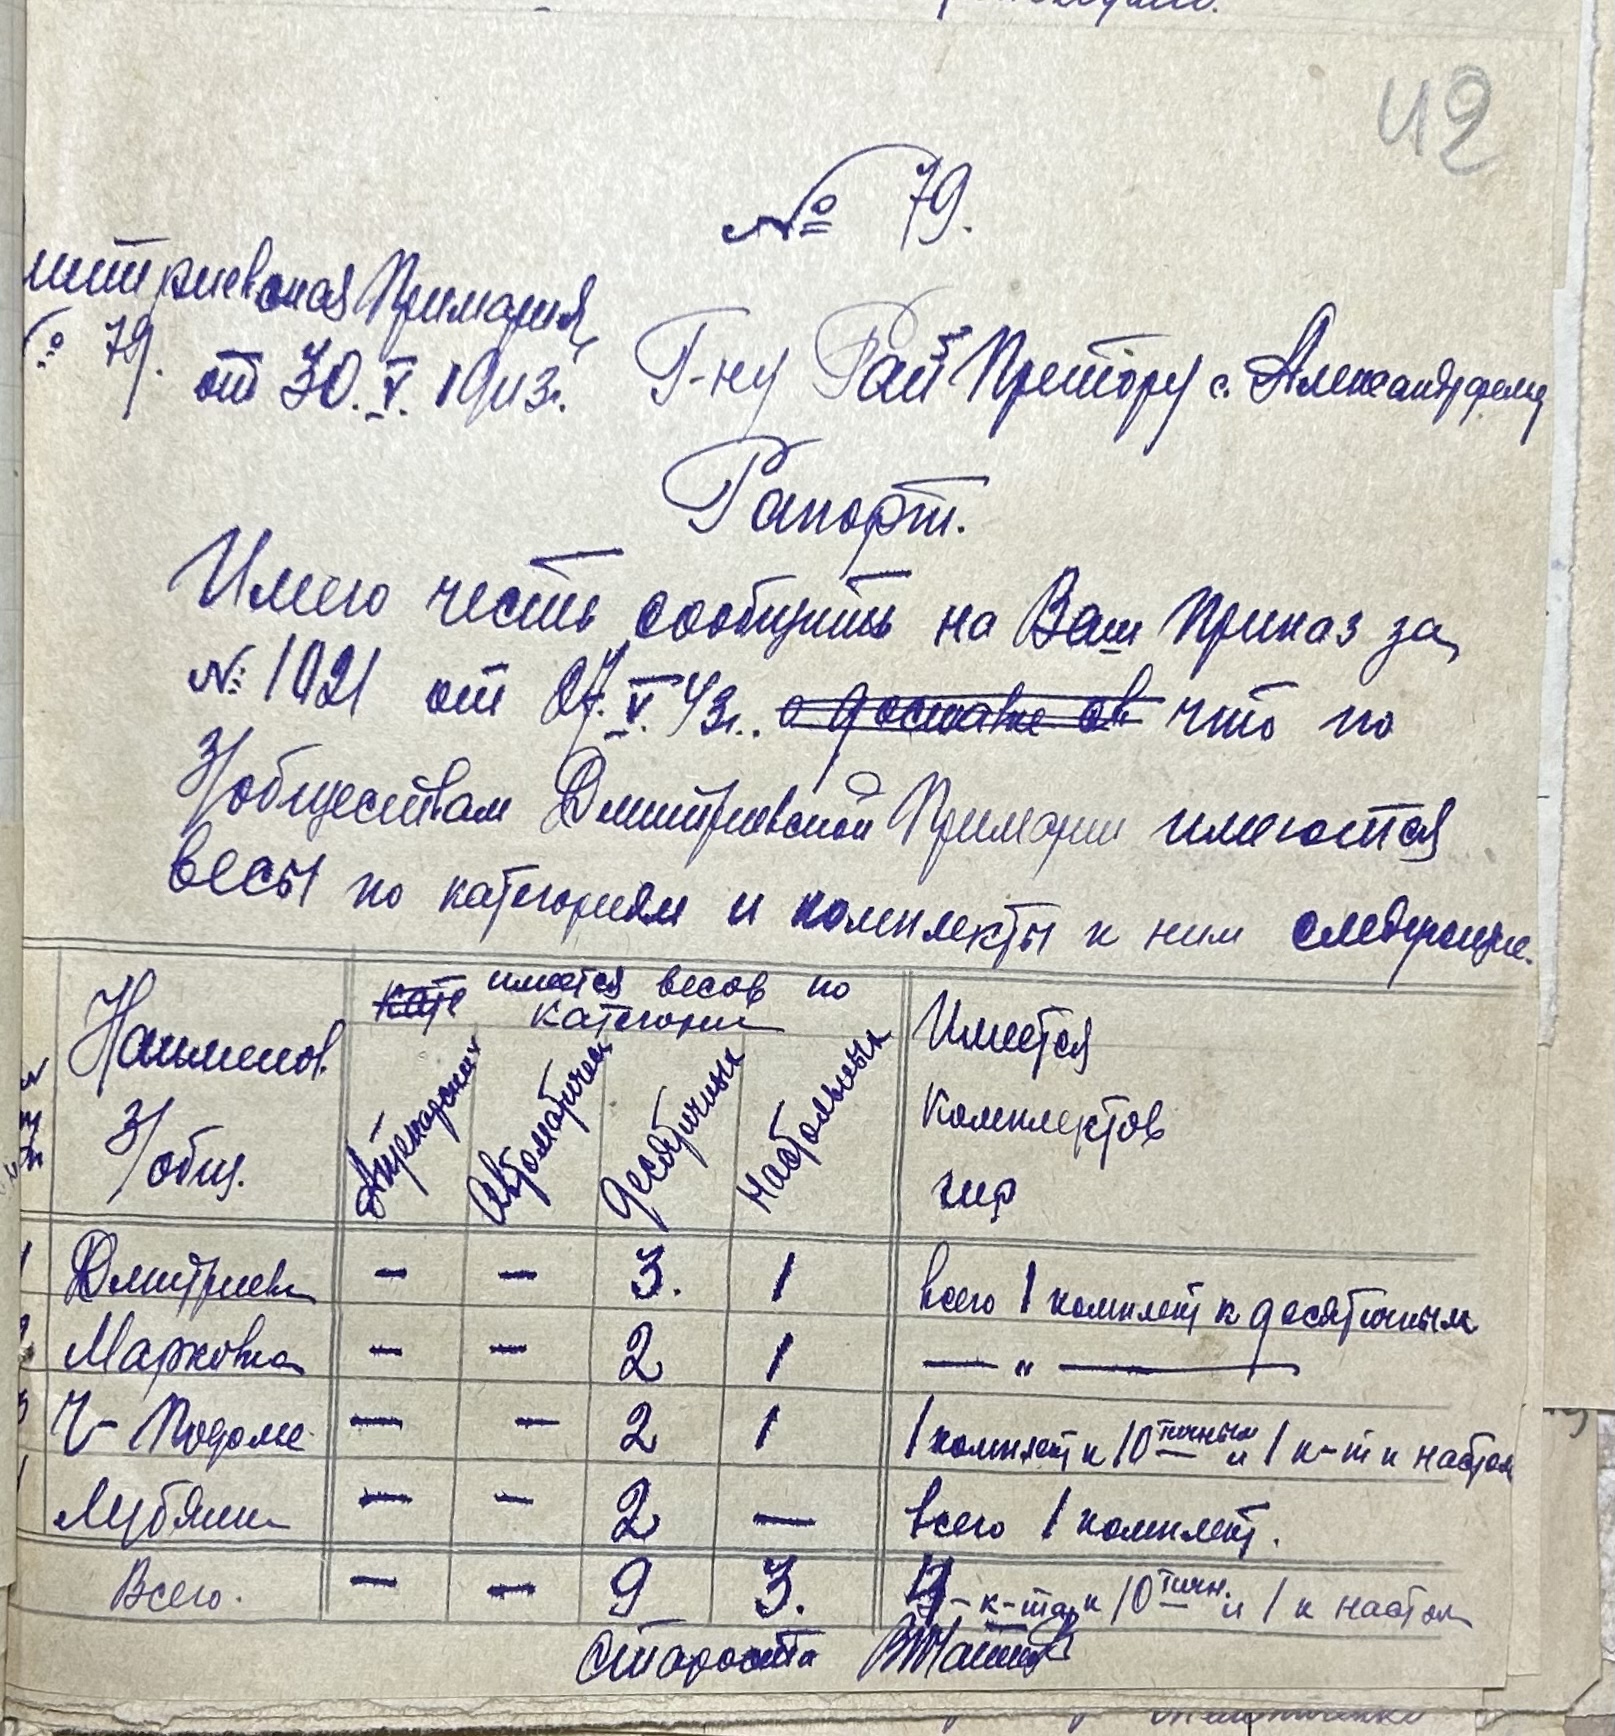 42
№ 79.
митриевская Примария
№ 79. от 30.V.1943г.
Г-ну Рай Претору с. Александрфельд
Рапорт.
Имею честь сообщить на Ваш приказ за
№ 1021 от 27.V.43г. о доставке св что по
З/обществам Дмитриевской Примарии имеются
весы по категориям и комплекты к ним следующие.
Наименов. З/общ.
кате имеется весов по
категории
Аптекарских
Автоматическ
Десятичных
Настольных
Имеется
комплектов
гир
1 Дмитриевка — — 3. 1 всего 1 комплект к десятичным
2. Марковка — — 2 1 — " —
3 Ч- Подолье — — 2 1 1 комплект к 10тичным и 1 к-т к настол
Лубянка — — 2 — всего 1 комплект.
Всего. — — 9 3. 4-к-та к 10тичн. и 1 к настол
Староста